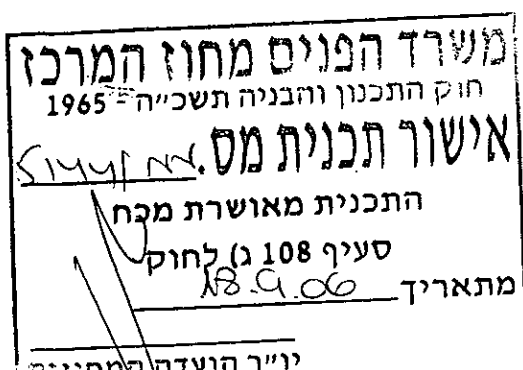 משרד הפנים מחוז המרכז
חוק התכנון והבניה תשכ״ה - 1965
אישור תכנית מס.
התכנית מאושרת מכח
סעיף 108 ג) לחוק
מתאריך 18.9.06
יו״ר הועדה המחוזית